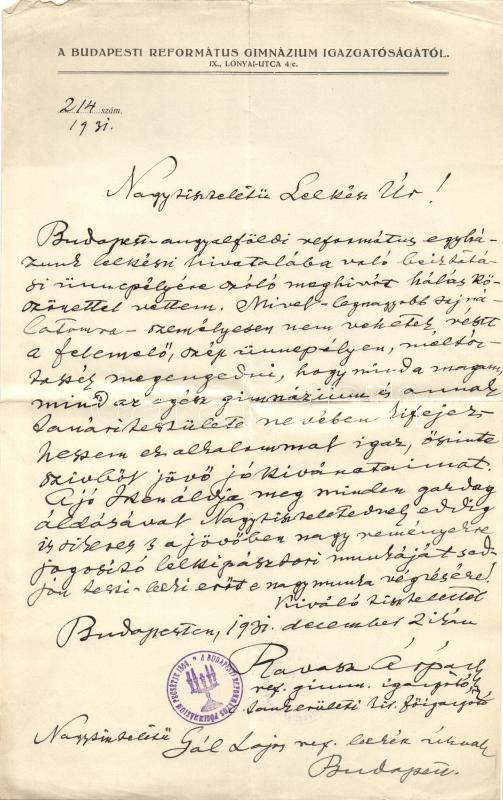 A BUDAPESTI REFORMÁTUS GIMNÁZIUM IGAZGATÓSÁGÁTÓL.
IX., LÓNYAI-UTCA 4/c.
214 szám.
1931.
Nagytiszteletü Lelkész Úr!
Budapest-angyalföldi református egyhá-
zunk lelkészi hivatalába való beiktatá-
si ünnepélyére szóló meghivót hálás kö-
szönettel vettem. Mivel – legnagyobb sajná-
latomra – személyesen nem vehetek részt
a felemelő, szép ünnepélyen, méltóz-
tassék megengedni, hogy mind a magam,
mind az egész gimnázium és annak
tanáritestülete nevében kifejez-
hessem ez alkalommal igaz, őszinte
szivből jövő jókivánataimat.
A jó Isten áldja meg minden gazdag
áldásával Nagytiszteletednek eddig
is sikeres s a jövőben nagy reményekre
jogositó lelkipásztori munkáját, ad-
jon testi-lelki erőt e nagy munka végzésére!
Kiváló tisztelettel
Budapesten, 1931. december 2-ikán
Ravasz Árpád
ref. gimn. igazgató,
tankerületi kir. főigazgató
A BUDAPESTI REFORMÁTUS FŐGIMNÁZIUM PECSÉTJE 1859.
Nagytiszteletü Gál Lajos ref. lelkész úrnak
Budapest.